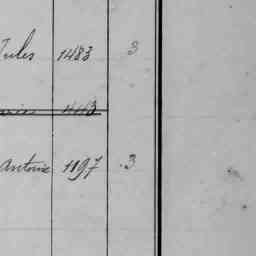 Jules 1483 3
Antoine 1197 . 3